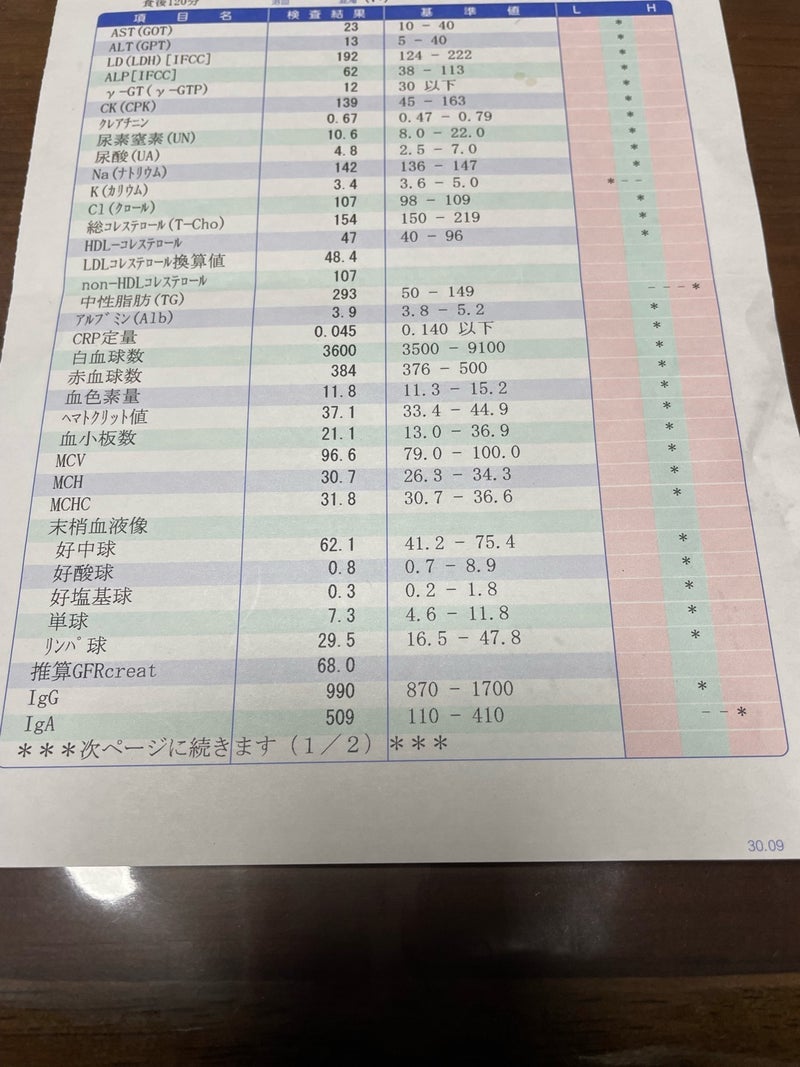 食後120分
項目名 検査結果 基準値 L H
AST(GOT) 23 10 - 40 *
ALT(GPT) 13 5 - 40 *
LD(LDH)[IFCC] 192 124 - 222 *
ALP[IFCC] 62 38 - 113 *
γ-GT(γ-GTP) 12 30 以下 *
CK(CPK) 139 45 - 163 *
クレアチニン 0.67 0.47 - 0.79 *
尿素窒素(UN) 10.6 8.0 - 22.0 *
尿酸(UA) 4.8 2.5 - 7.0 *
Na(ナトリウム) 142 136 - 147 *
K(カリウム) 3.4 3.6 - 5.0 *--
Cl(クロール) 107 98 - 109 *
総コレステロール(T-Cho) 154 150 - 219 *
HDL-コレステロール 47 40 - 96 *
LDLコレステロール換算値 48.4
non-HDLコレステロール 107
中性脂肪(TG) 293 50 - 149 ---*
アルブミン(Alb) 3.9 3.8 - 5.2 *
CRP定量 0.045 0.140 以下 *
白血球数 3600 3500 - 9100 *
赤血球数 384 376 - 500 *
血色素量 11.8 11.3 - 15.2 *
ヘマトクリット値 37.1 33.4 - 44.9 *
血小板数 21.1 13.0 - 36.9 *
MCV 96.6 79.0 - 100.0 *
MCH 30.7 26.3 - 34.3 *
MCHC 31.8 30.7 - 36.6 *
末梢血液像
好中球 62.1 41.2 - 75.4 *
好酸球 0.8 0.7 - 8.9 *
好塩基球 0.3 0.2 - 1.8 *
単球 7.3 4.6 - 11.8 *
リンパ球 29.5 16.5 - 47.8 *
推算GFRcreat 68.0
IgG 990 870 - 1700 *
IgA 509 110 - 410 --*
***次ページに続きます(1/2)***
30.09